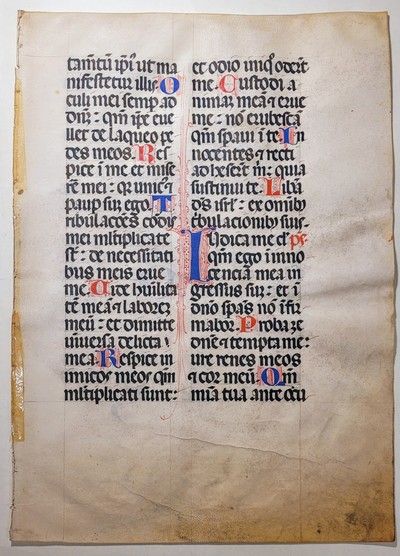 tam̄tū ip̄i ut ma
nifestetur illis. O
culi mei semꝑ ad
dn̄ꝫ: qm̄ ip̄e eue
llet de laqueo pe
des meos. Res
pice ī me et mise
re mei: qꝛ unicꝰ ⁊
pauꝑ suꝫ ego. T
ribulacōes cordis
mei ml̄tiplicate
st̄: de necessitati
bus meis erue
me. Uide huīlita
tē meā ⁊ laboreꝫ
meū: et dimitte
uniuersa delicta
mea. Respice in
imicos meos qm̄
ml̄tiplicati sunt:
et odio iniqͦ oder̄t
me. Custodi a
nimaꝫ meā ⁊ erue
me: nō erubescā
qm̄ sꝑaui ī te. In
nocentes ⁊ recti
adheser̄t m̄: quia
sustinui te. Libā
ds̄ isrl̄: ex oīnibꝫ
tͥbulacionibꝫ suis
Iudica me dn̄e ps̄
qm̄ ego ī inno
cencia mea in
gressus suꝫ: et ī
dn̄o sꝑās nō īfir
mabor. Proba me
dn̄e ⁊ tempta me:
ure renes meos
⁊ cor meū. Qm̄
mīa tua ante ocu